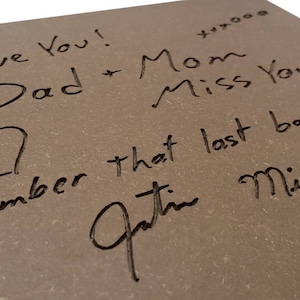 ve You! xxxooo
Dad + Mom
Miss You
mber that last ba